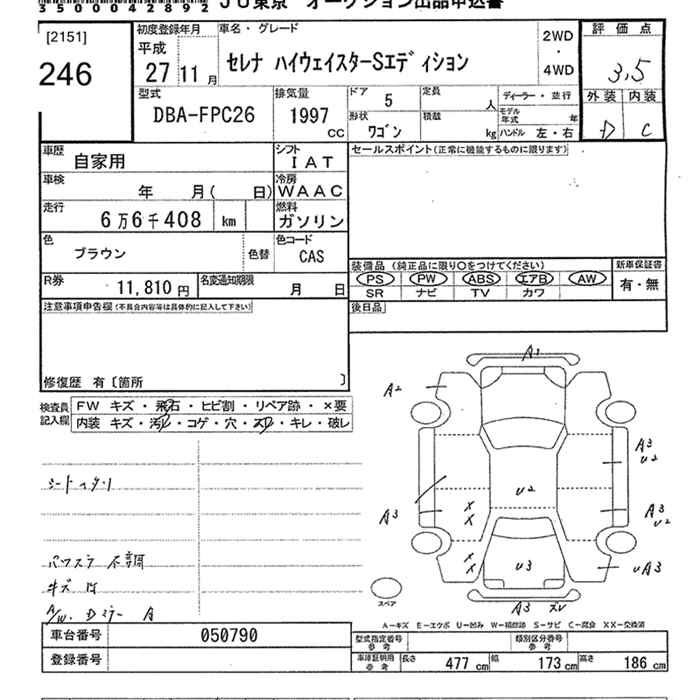 35000042892 JU東京 オークション出品申込書
[2151]
246
初度登録年月
平成
27 11月
車名・グレード
セレナ ハイウェイスターSエディション
2WD
・
4WD
評価点
3,5
外装 内装
D C
型式
DBA-FPC26
排気量
1997
CC
ドア
5
定員
人
形状
ワゴン
積載
kg
ディーラー・並行
モデル年式 年
ハンドル 左・右
車歴
自家用
シフト
IAT
セールスポイント(正常に機能するものに限ります)
車検
年 月( 日)
冷房
WAAC
走行
6万6千408 km
燃料
ガソリン
色
ブラウン
色替
色コード
CAS
装備品(純正品に限り○をつけてください)
PS PW ABS エアB AW
SR ナビ TV カワ
新車保証書
有・無
R券
11,810円
名変通知期限
月 日
後日品
注意事項申告欄(不具合内容等は具体的に記入して下さい)
修復歴 有〔箇所 〕
検査員記入欄
FW キズ・飛石・ヒビ割・リペア跡・×要
内装 キズ・汚レ・コゲ・穴・スレ・キレ・破レ
A1
A2
A3
U2
A3
U2
A3
X
X
A3
U2
X
X
U3
UA3
A3
スペア
パワステ 不調
キズ
A/W. Dミラー A
A-キズ E-エクボ U-凹み W-補修跡 S-サビ C-腐食 XX-交換済
車台番号 050790
登録番号
型式指定番号 参考
類別区分番号 参考
車庫証明用 参考
長さ 477cm
幅 173cm
高さ 186cm